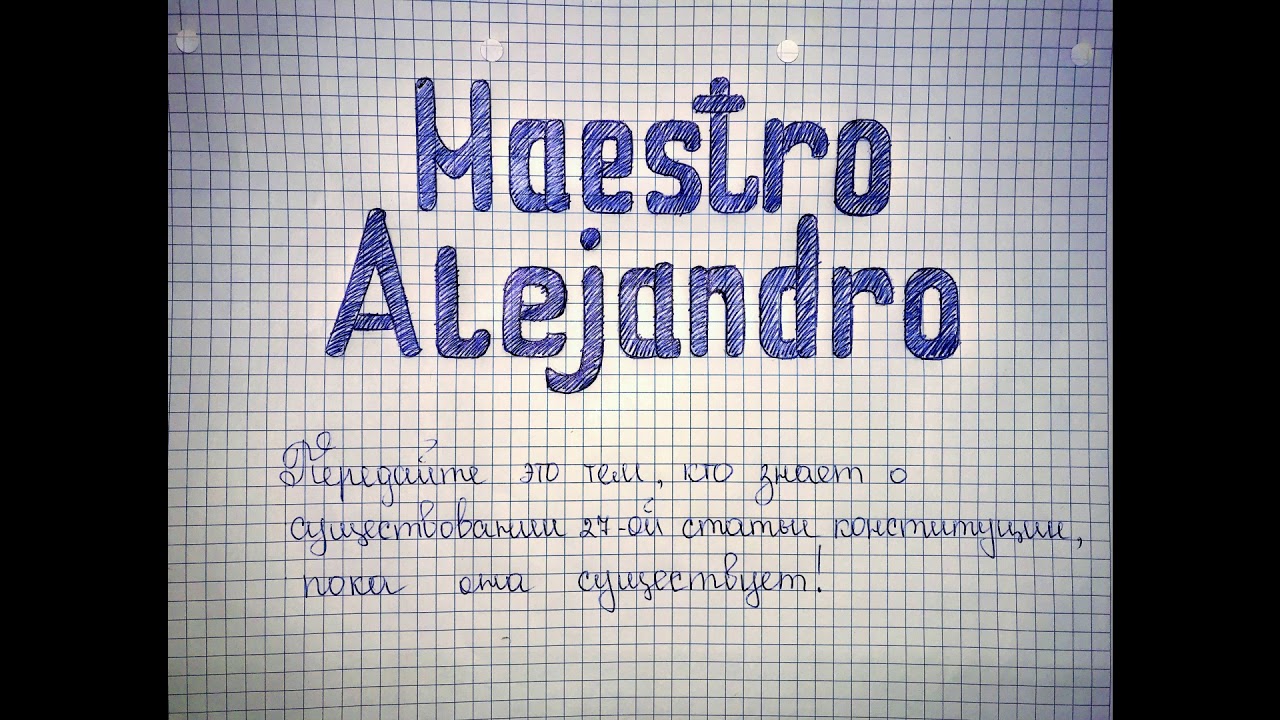 Maestro
Alejandro
Передайте это тем, кто знает о
существовании 27-ой статьи конституции,
пока она существует!